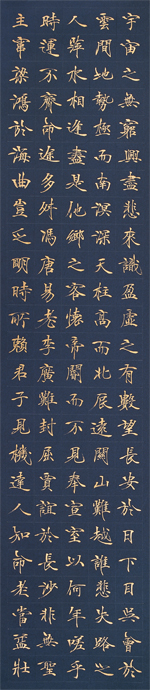 宇宙之無窮興盡悲來識盈虛之有數望長安於日下目吳會於
雲間地勢極而南溟深天柱高而北辰遠關山難越誰悲失路之
人萍水相逢盡是他鄉之客懷帝閽而不見奉宣室以何年嗟乎
時運不齊命途多舛馮唐易老李廣難封屈賈誼於長沙非無聖
主竄梁鴻於海曲豈乏明時所賴君子見機達人知命老當益壯